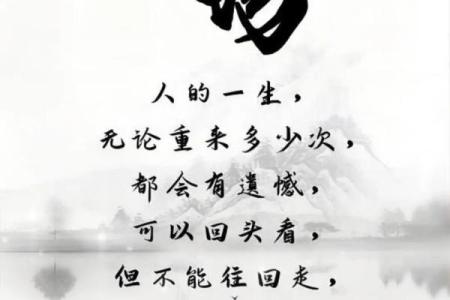 人的一生，
无论重来多少次，
都会有遺憾，
可以回头看，
但不能往回走，